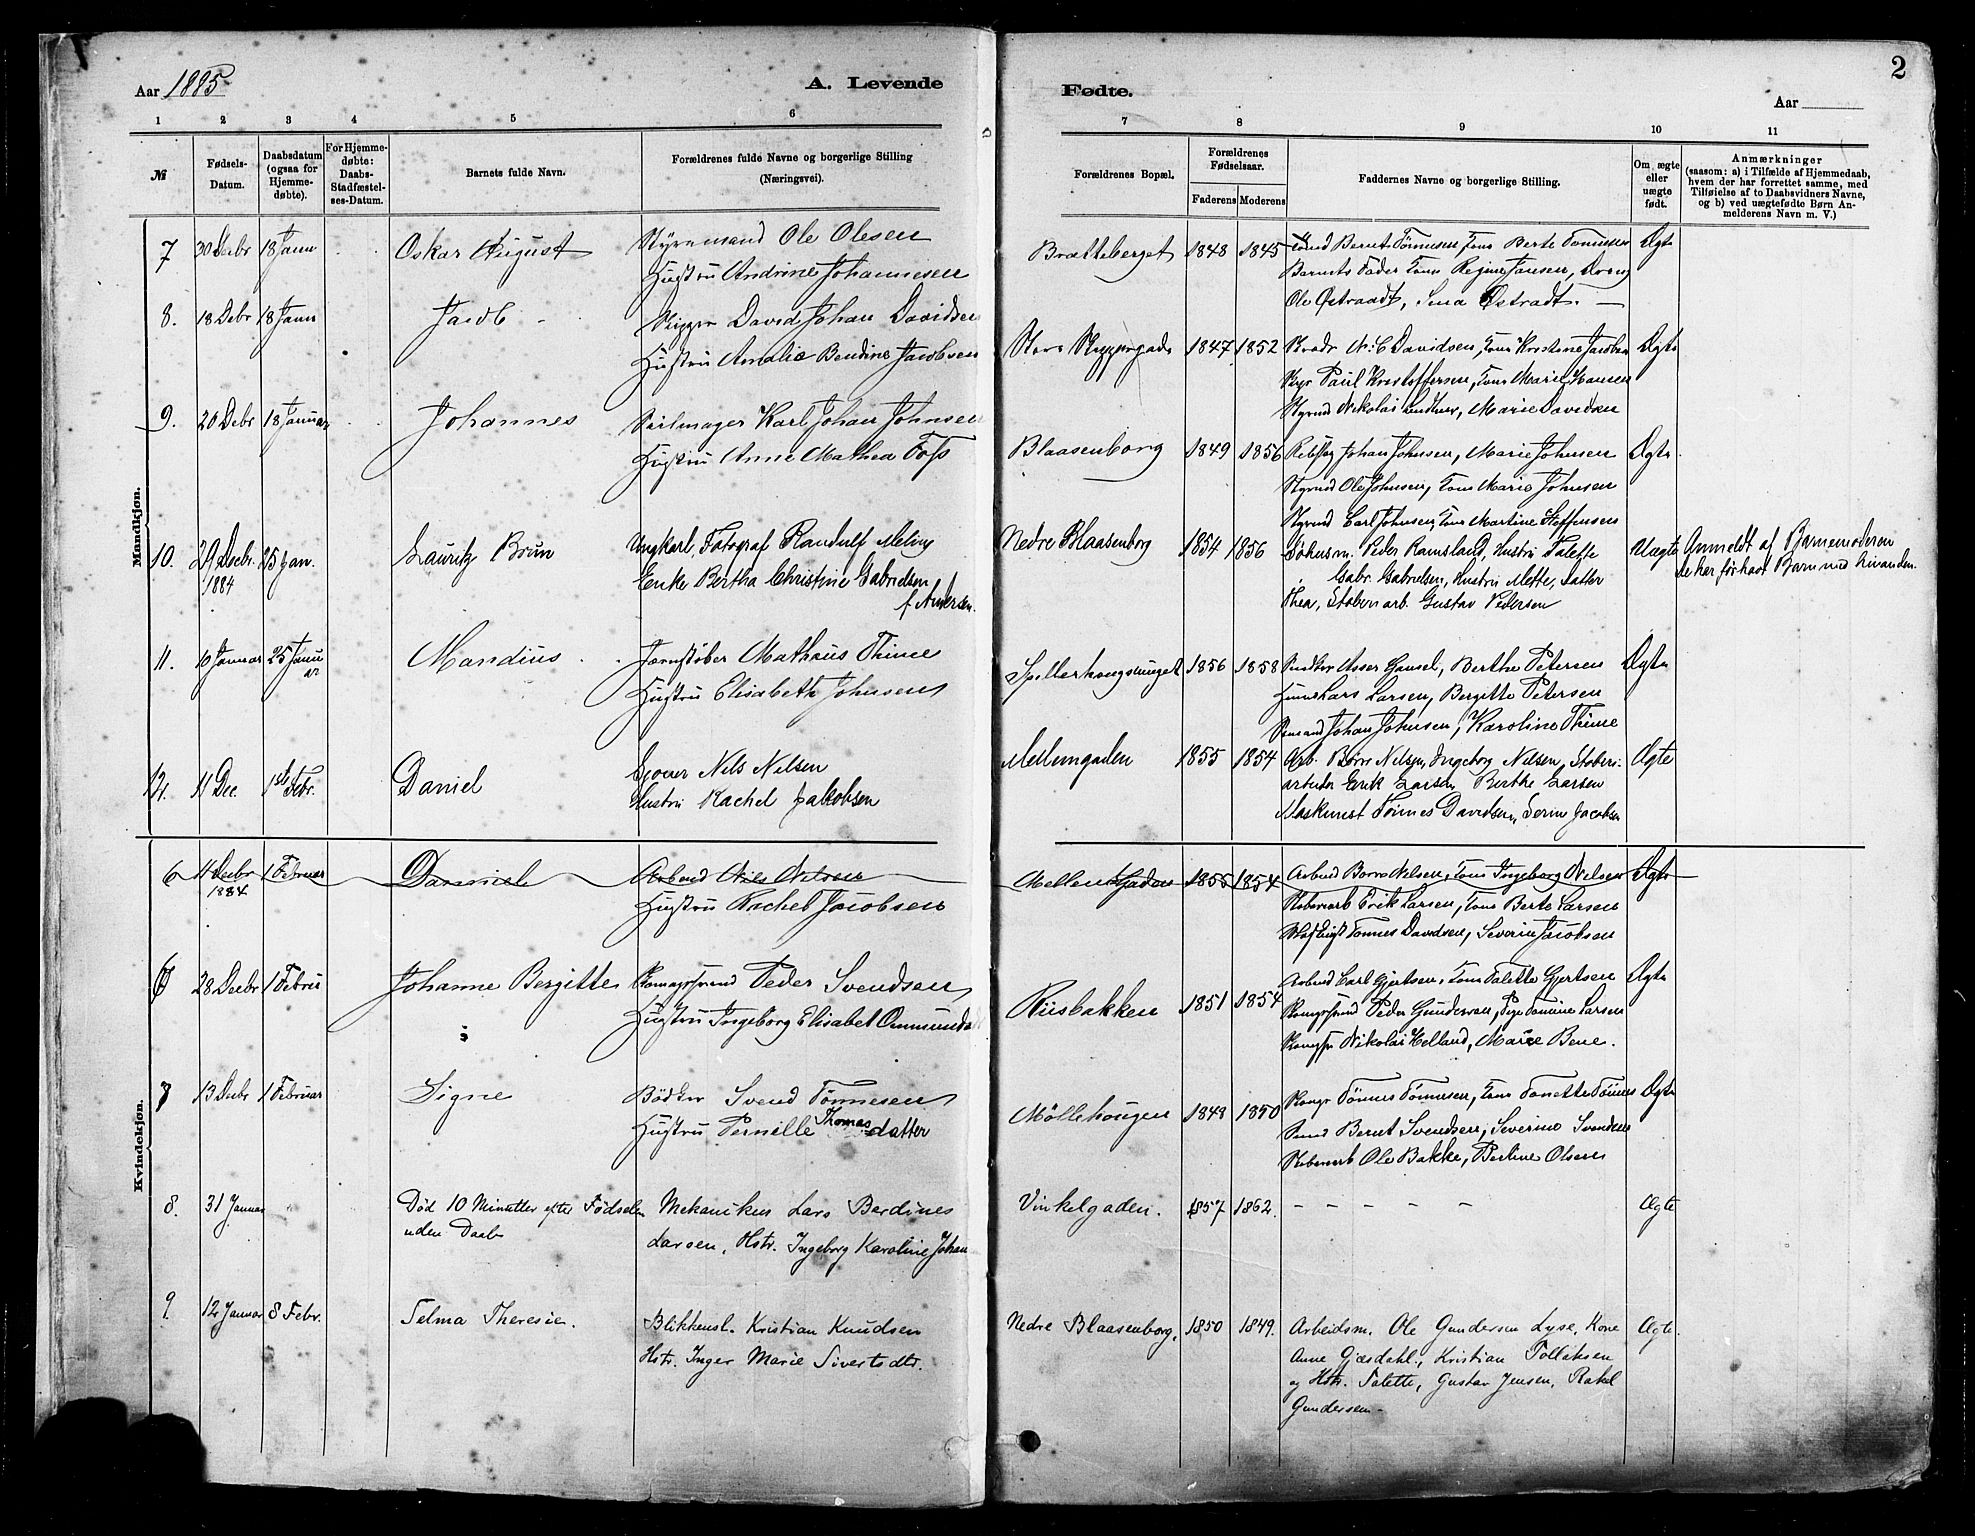 2
Aar 1885
A. Levende
Fødte.
Aar
1 2 3 4 5 6 7 8 9 10 11
№
Fødsels-
Datum.
Daabsdatum
(ogsaa for
Hjemme-
døbte).
For Hjemme-
døbte:
Daabs-
Stadfæstel-
ses-Datum.
Barnets fulde Navn.
Forældrenes fulde Navne og borgerlige Stilling
(Næringsvei).
Forældrenes Bopæl.
Forældrenes
Fødselsaar.
Faderens Moderens
Faddernes Navne og borgerlige Stilling.
Om ægte
eller
uægte
født.
Anmærkninger
(saasom: a) i Tilfælde af Hjemmedaab,
hvem der har forrettet samme, med
Tilføielse af to Daabsvidners Navne,
og b) ved uægtefødte Børn An-
melderens Navn m. V.)
Mandkjøn.
7 30 Decbr 18 Jann Oskar August Styremand Ole Olesen
Hustru Andrine Johannesen
Bratteberget 1848 1845 Bernt Tønnesen, Berte Tønnesen Ægte
Barnets Fader Regine Jansen, Dreng
Ole Østraadt, Sina Østradt.
8. 18 Debr 18 Jann Jacob Skipper David Johan Davidsen
Hustru Amalie Bendine Jacobsen
1847 1852 N. C. Davidsen, Kristine Jacobsen Ægte
Paul Kristoffersen, Marie Hansen
Nikolai Marie Davidsen
9. 20 Debr 18 Januar Johannes Seilmager Karl Johan Johnsen
Hustru Anne Mathea Foss
Blaasenborg 1849 1856 Johan Johnsen, Marie Johnsen Ægte
Ole Johnsen, Marie Johnsen
Carl Johnsen, Martine Steffensen
10. 29 Decbr. 1884 25 Jan. Lauritz Brun Ungkarl, Fotograf Randulf Meling
Enke Bertha Christine Gabrielsen
f. Andersen.
Nedre Blaasenborg 1854 1856 Peder Ramsland, Hustru Talette Uægte Anmeldt af Barnemoderen
de har før havt Barn med hinanden.
Gabr. Gabrielsen, Hustru Mette, Datter
Thea, Stoberiarb. Gustav Pedersen
11. 10 Januar 25 Januar Mandius Jernstøber Mathæus Thime
Hustru Elisabeth Johnsen
1856 1858 Asser Gausel, Berthe Petersen Ægte
Lars Larsen, Bergitte Petersen
Johan Johnsen, Karoline Thime
12. 11 Dec. 1ste Febr. Daniel Gjover Nils Nilsen
Hustru Rachel Jakobsen
Mellemgaden 1855 1854 Arb. Børre Nilsen, Ingeborg Nilsen, Støberi- Ægte
arbeider Erik Larsen, Berthe Larsen
Maskinist Tønnes Davidsen, Serine Jacobsen
Kvindekjøn.
6 11 Decbr 1884 1 Februar Danniel Arbmd Nils Nilsen
Hustru Rachel Jacobsen
Mellem Gaden 1855 1854 Arbmd Børre Nilsen, Ingeborg Nilsen Ægte
Stoberiarb Erik Larsen, Berte Larsen
Tønnes Davidsen, Severine Jacobsen
6 28 Decbr 1 Februar Johanne Bergitte Peder Svendsen
Hustru Ingeborg Elisabet Ommunds
Riisbakken 1851 1854 Arbmd Carl Gjertsen, Talette Gjertsen Ægte
Peder Gundersen, Pige Tomine Larsen
Nikolai Helland, Marie Bene.
7 13 Decbr 1 Februar Signe Bödker Svend Tönnesen
Hustru Pernille Thomasdatter
Möllehougen 1848 1850 Tönnes Tönnesen, Tonette Tönnes Ægte
Bernt Svendsen, Severine Svendsen
Stoberiarb Ole Bakke, Berline Olsen
8. 31 Januar Død 10 Minutter efter Fødselen
uden Daab
Mekanikus Lars Berdines
Larsen, Hstr. Ingeborg Karoline Johan
Vinkelgaden. 1857 1862. – – – – – Ægte
9. 12 Januar 8 Febr. Telma Theresie. Blikkensl. Kristian Knudsen
Hstr. Inger Marie Sivertsdtr.
Nedre Blaasenborg. 1850 1849. Arbeidsm. Ole Gundersen Lyse, Kone Ægte.
Anne Gjæsdahl., Kristian Tolliksen
og Hstr. Talette, Gustav Jensen, Rakel
Gundersen.